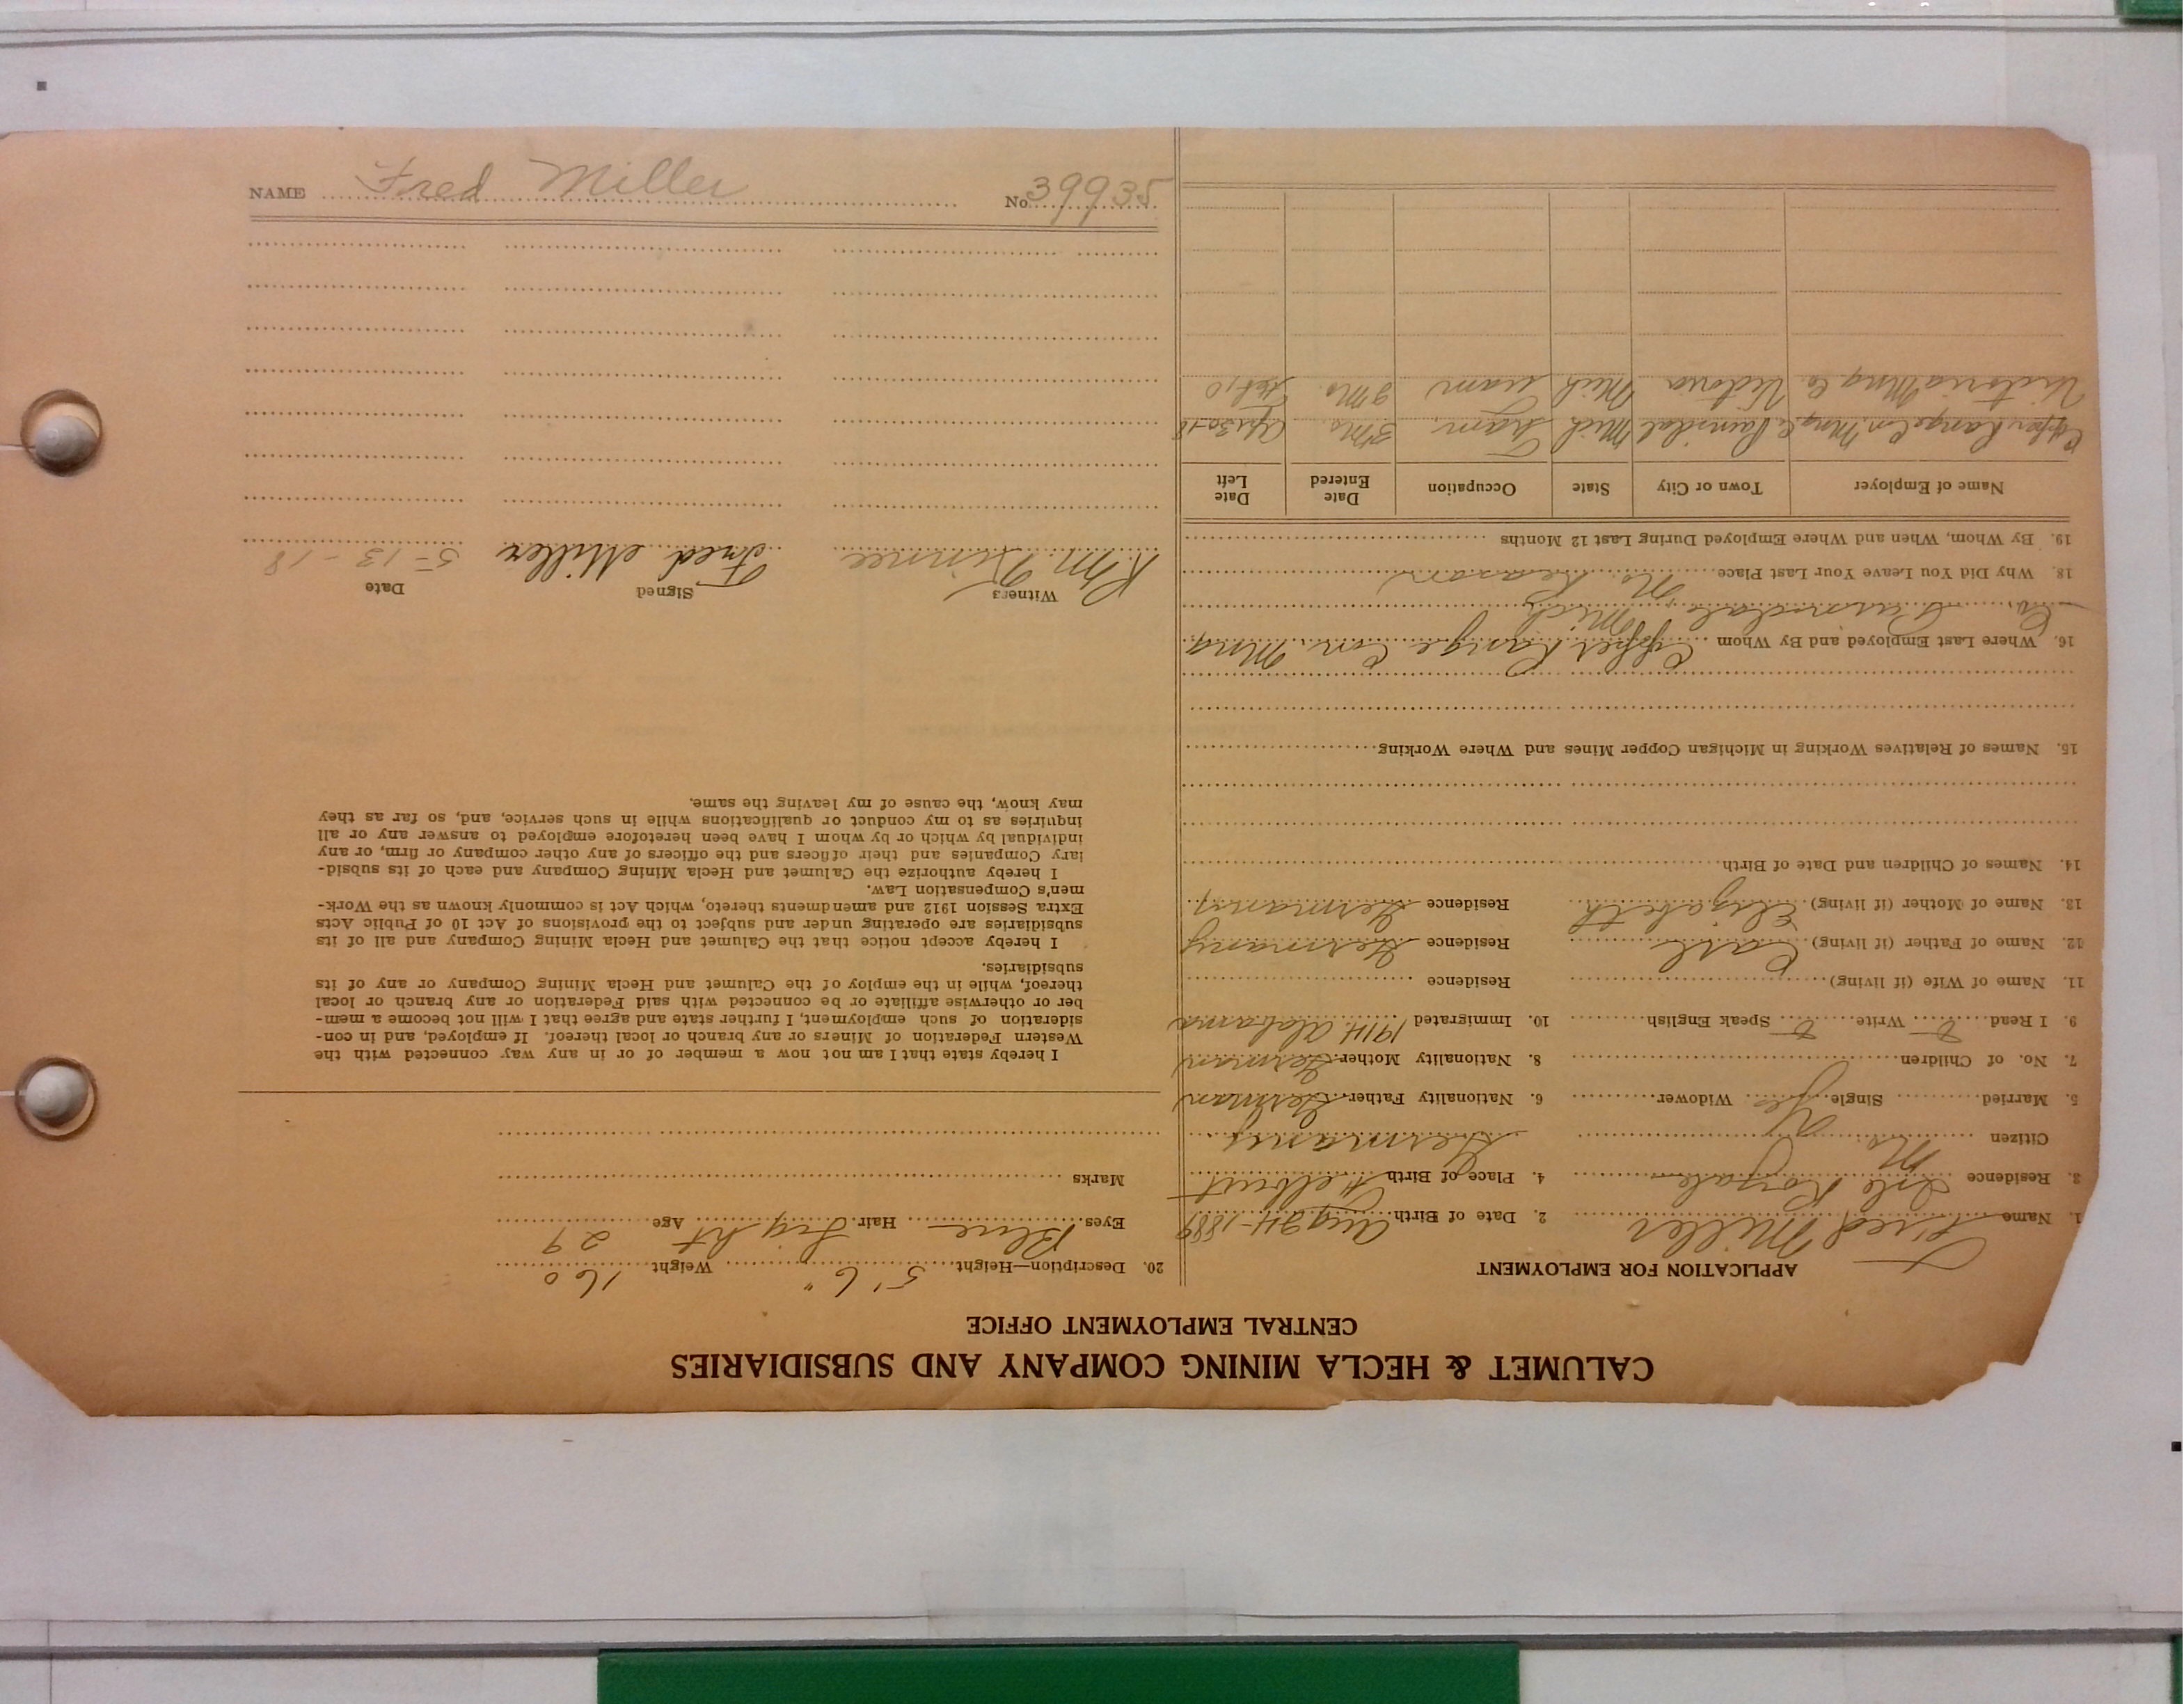 CALUMET & HECLA MINING COMPANY AND SUBSIDIARIES
CENTRAL EMPLOYMENT OFFICE
APPLICATION FOR EMPLOYMENT
1. Name Fred Miller 2. Date of Birth Aug 24-1889
3. Residence Isle Royale 4. Place of Birth
Citizen No Germany
5. Married Single Yes Widower 6. Nationality Father German
7. No. of Children 8. Nationality Mother German
9. I Read Write Speak English 10. Immigrated 1914 Alabama
11. Name of Wife (if living) Residence
12. Name of Father (if living) Carl Residence Germany
13. Name of Mother (if living) Elizabeth Residence Germany
14. Names of Children and Date of Birth
15. Names of Relatives Working in Michigan Copper Mines and Where Working
16. Where Last Employed and By Whom Copper Range Con. Mng
Co. Painesdale Mich
18. Why Did You Leave Your Last Place No Reason
19. By Whom, When and Where Employed During Last 12 Months
Name of Employer Town or City State Occupation Date Entered Date Left
Copper Range Con. Mng Co Painsdal Mich Tram 3 Mo. Apr 30-18
Victoria Mng Co Victoria Mich Tram 9 Mo. Feb 10
20. Description—Height 5'6" Weight 160
Eyes Blue Hair Light Age 29
Marks
I hereby state that I am not now a member of or in any way connected with the
Western Federation of Miners or any branch or local thereof. If employed, and in con-
sideration of such employment, I further state and agree that I will not become a mem-
ber or otherwise affiliate or be connected with said Federation or any branch or local
thereof, while in the employ of the Calumet and Hecla Mining Company or any of its
subsidiaries.
I hereby accept notice that the Calumet and Hecla Mining Company and all of its
subsidiaries are operating under and subject to the provisions of Act 10 of Public Acts
Extra Session 1912 and amendments thereto, which Act is commonly known as the Work-
men's Compensation Law.
I hereby authorize the Calumet and Hecla Mining Company and each of its subsid-
iary Companies and their officers and the officers of any other company or firm, or any
individual by which or by whom I have been heretofore employed to answer any or all
inquiries as to my conduct or qualifications while in such service, and, so far as they
may know, the cause of my leaving the same.
Witness Signed Date
R. M. Fred Miller 5-13-18
NAME Fred Miller No. 39935